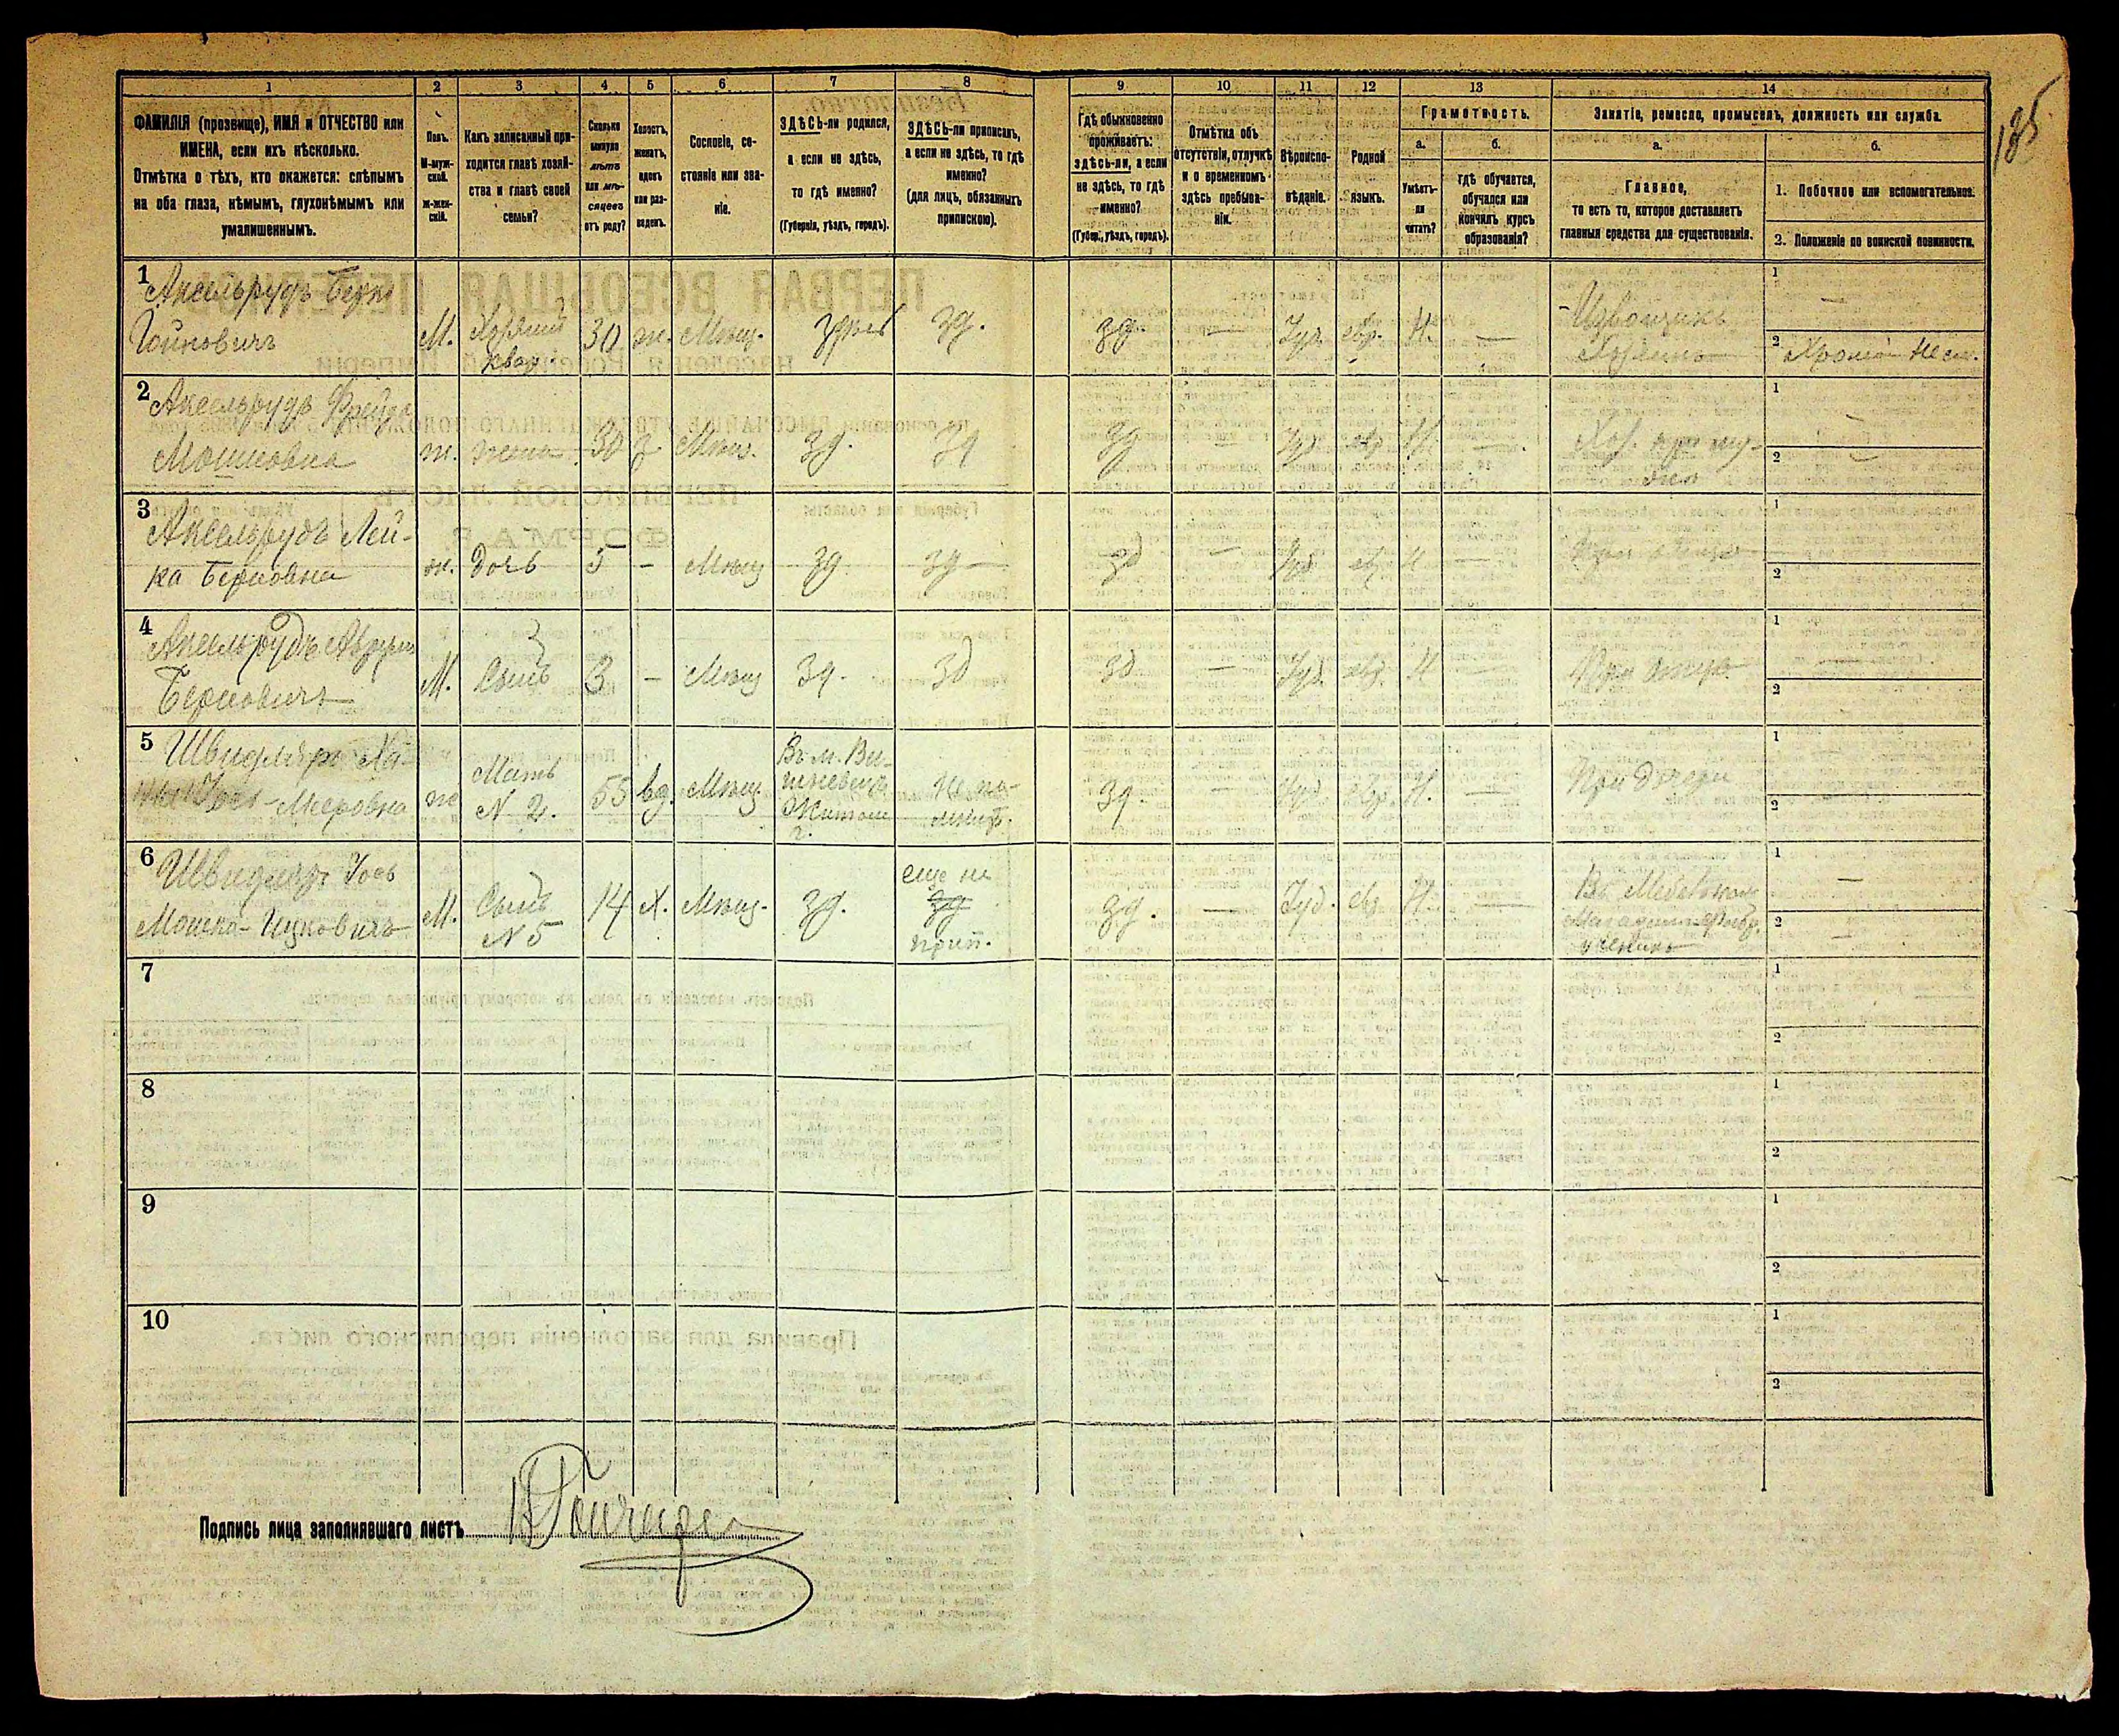 185
1 2 3 4 5 6 7 8 9 10 11 12 13 14
ФАМИЛІЯ (прозвище), ИМЯ и ОТЧЕСТВО или
ИМЕНА, если ихъ нѣсколько.
Отмѣтка о тѣхъ, кто окажется: слѣпымъ
на оба глаза, нѣмымъ, глухонѣмымъ или
умалишеннымъ.
Полъ.
М-муж-
ской.
Ж-жен-
скій.
Какъ записанный при-
ходится главѣ хозяй-
ства и главѣ своей
семьи?
Сколько
минуло
лѣтъ
или мѣ-
сяцевъ
отъ роду?
Холостъ,
женатъ,
вдовъ
или раз-
веденъ.
Сословіе, со-
стояніе или зва-
ніе.
ЗДѢСЬ-ли родился,
а если не здѣсь,
то гдѣ именно?
(Губернія, уѣздъ, городъ).
ЗДѢСЬ-ли приписанъ,
а если не здѣсь, то гдѣ
именно?
(для лицъ, обязанныхъ
припискою).
Гдѣ обыкновенно
проживаетъ:
здѣсь-ли, а если
не здѣсь, то гдѣ
именно?
(Губер., уѣздъ, городъ).
Отмѣтка объ
отсутствіи, отлучкѣ
и о временномъ
здѣсь пребыва-
ніи.
Вѣроиспо-
вѣданіе.
Родной
языкъ.
Грамотность.
а.
Умѣетъ-
ли
читать?
б.
гдѣ обучается,
обучался или
кончилъ курсъ
образованія?
Занятіе, ремесло, промыселъ, должность или служба.
а.
Главное,
то есть то, которое доставляетъ
главныя средства для существованія.
б.
1. Побочное или вспомогательное.
2. Положеніе по воинской повинности.
1 Аксельрудъ Берко
Гойновичъ М. Хозяинъ 30 ж. Мѣщ. Здѣсь зд. зд. — Іуд. евр. Н. — Извощикъ
квар. Хозяинъ
1 —
2 Хромой Не сл.
2 Аксельрудъ Фрейда
Мошковна ж. жена 30 з Мѣщ. зд. зд зд — Іуд. евр. Н. —
1 —
2 —
3 Аксельрудъ Лей-
ка Берковна ж. дочь 5 — Мѣщ зд. зд — зд — Іуд. евр. Н — При отцѣ
1
2
4 Аксельрудъ
Берковичъ М. Сынъ 3 — Мѣщ зд. зд зд — Іуд. евр. Н — При отцѣ
1
2
5 Швидлеръ Ха-
Мееровна ж Мать
N 2. 55 вд. Мѣщ. Въ м. Ви-
Житом
г. Не по-
мнитъ. зд. — Іуд. евр. Н. — При дочери
1
2
6 Швидлеръ Іось
Мошка-Ицковичъ М. Сынъ
N 5 14 Х. Мѣщ. зд. еще не
зд
прип. зд. — Іуд. евр. Н — Въ Мебельном
ученикъ
1 —
2 —
7
1
2
8
1
2
9
1
2
10
1
2
Подпись лица заполнявшаго листъ